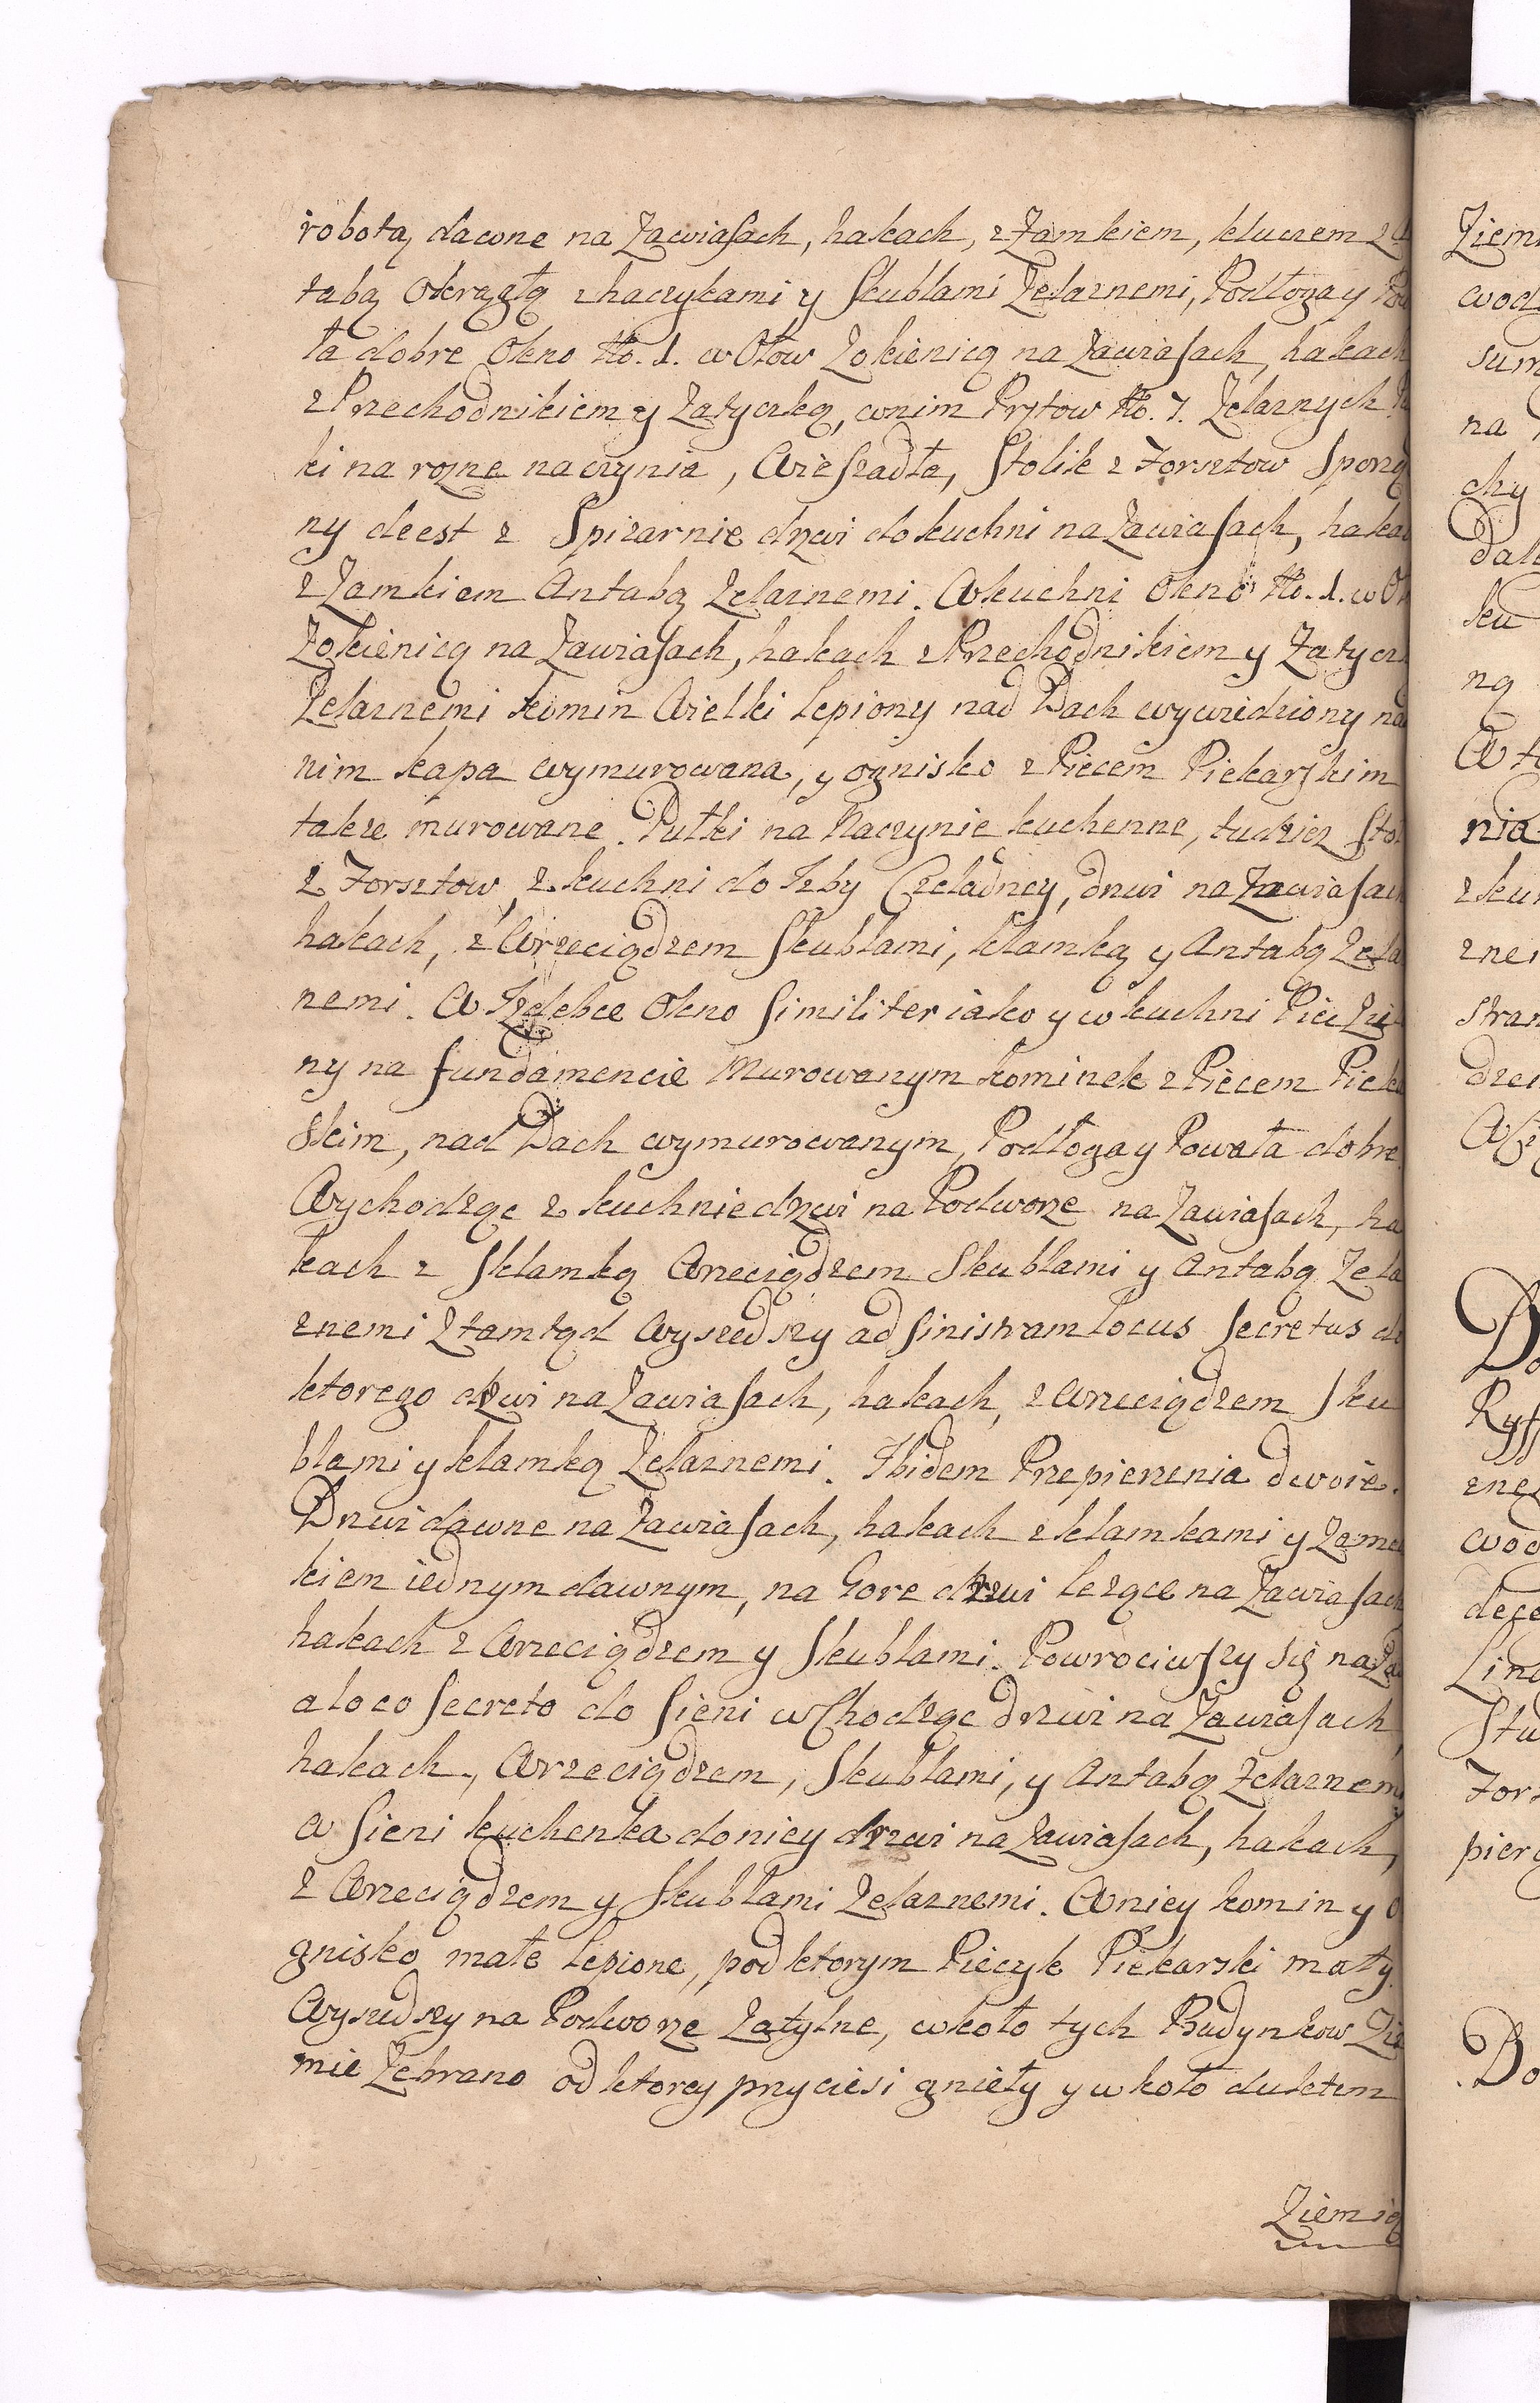 robotą dawne na Zawiasach, hakach, z Zamkiem, kluczem z
tabą Okrągłą z haczykami y Skublami Zelaznemi, Podłoga y Pow
ła dobre Okno No. 1. w Ołow Zokienicą na Zawiasach, hakach
z Przechodnikiem y Zatyczką, w nim Prętow No. 7. Zelaznych
ki na rozne naczynia, Wieszadła, Stolik z Forsztow Sporzą
ny deest z Spizarnie drzwi do kuchni na Zawiasach, hakac
z Zamkiem Antabą Zelaznemi. W kuchni Okno No. 1. w Oł
Zokienicą na Zawiasach, hakach z Przechodnikiem y Zatycz
Zelaznemi komin Wielki lepiony nad Dach wywiedziony nad
nim kapa wymurowana, y ognisko z Piecem Piekarskim
takze murowane. Pułki na Naczynie kuchenne, tudziez Stoł
z Forsztow, z kuchni do Izby Czeladney, drzwi na Zawiasach
hakach, z Wrzeciądzem Skublami, klamką y Antabą Zela
nemi. W Izdebce Okno Similiter iako y w kuchni Piec Zie
ny na fundamencie Murowanym kominek z Piecem Pieka
skim, nad Dach wymurowanym, Podłoga y Powała dobre
Wychodząc z kuchnie drzwi na Podworze na Zawiasach, ha
kach z Sklamką Wrzeciądzem Skublami y Antabą Zela
znemi Ztamtąd Wyszedszy ad sinistram locus secretus do
ktorego drzwi na Zawiasach, hakach, z Wrzeciądzem Sku
blami y klamką Zelaznemi. Ibidem Przepierzenia dwoie.
Drzwi dawne na Zawiasach, hakach z klamkami y Zam
kiem iednym dawnym, na Gore drzwi lezące na Zawiasach
hakach z Wrzeciądzem y Skublami. Powrociwszy się na Za
a loco secreto do Sieni wChodząc drzwi na Zawiasach,
hakach, Wrzeciądzem, Skublami, y Antabą Zelaznemi
W Sieni kuchenka do niey drzwi na Zawiasach, hakach,
z Wrzeciądzem y Skubłami Zelaznemi. W niey komin y o
gnisko małe lepione, pod ktorym Piecyk Piekarski mały.
Wyszedszy na Podworze Zatylne, wkoło tych Budynkow Zie
mie Zebrano od ktorey przyciesi gnieły y w koło duktem
Ziemią
Ziemi
wod
sum
na
chy
dal
ku
ną
nia
z ku
zne
stran
dze
Do
Ryss
zne
wod
dece
Lin
Stu
For
pier
Do